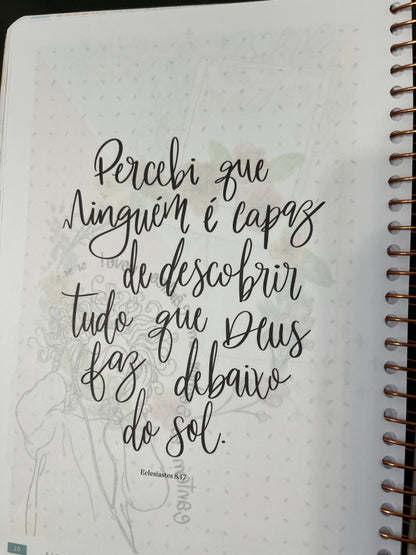 Percebi que
Ninguém é capaz
de descobrir
tudo que Deus
faz debaixo
do sol.
Eclesiastes 8.17
20